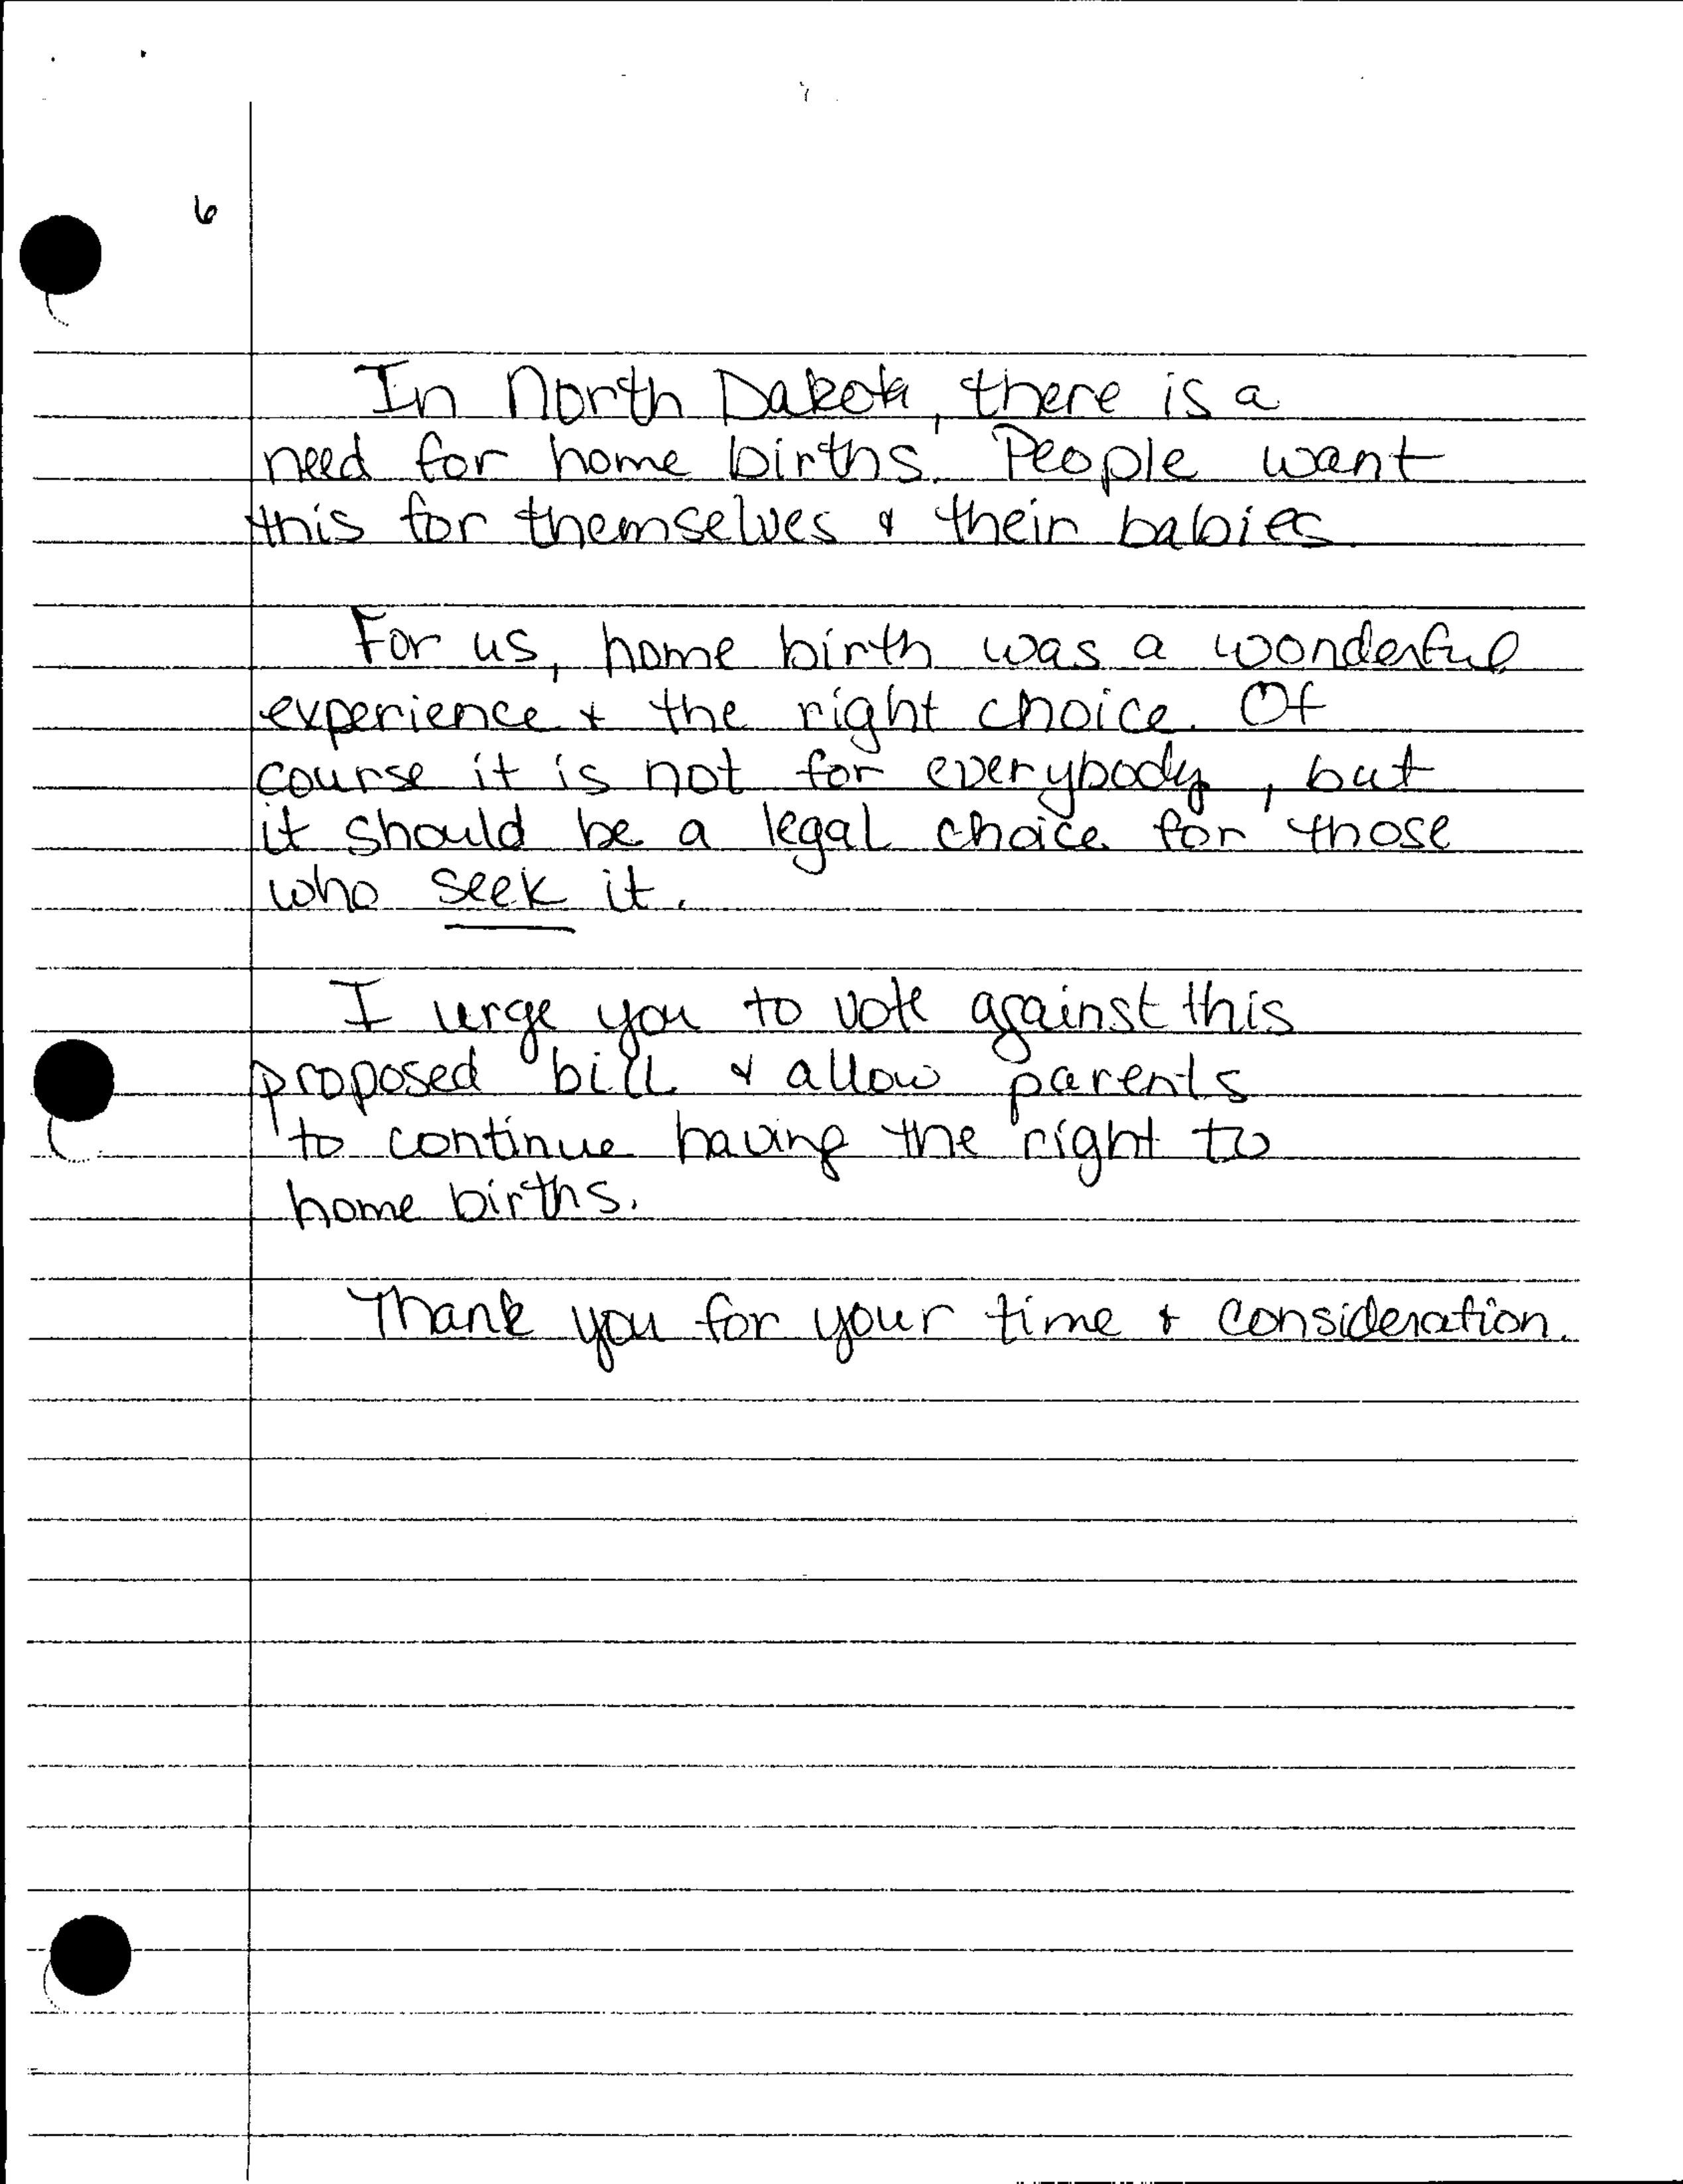 6
In North Dakota, there is a
need for home births. People want
this for themselves & their babies.
For us, home birth was a wonderful
experience & the right choice. Of
course it is not for everybody, but
it should be a legal choice for those
who seek it.
I urge you to vote against this
proposed bill & allow parents
to continue having the right to
home births.
Thank you for your time & consideration.